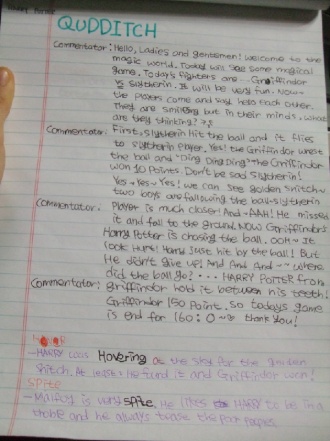 QUDDITCH
Commentator: Hello, Ladies and gentlemen! welcome to the
magic world. Today will see some magical
game. Today's fighters are... Griffindor
vs Slytherin. It will be very fun. Now
the players come and say hello each other.
They are smiling but in their minds. What
are they thinking?
Commentator: First, Slytherin hit the ball and it flies
to Slytherin Player. Yes! the Griffindor
the ball and "Ding Ding Ding" The Griffindor
won 10 Points. Don't be sad Slytherin!
Yes~Yes~Yes! we can see golden snitch~
two boys are following the ball-slytherin
Commentator: Player is much closer! And~AAH! He misses
it and fall to the ground. NOW Griffindor's
Harry Potter is chasing the ball. OOH~ It
look Hurt! Harry Just hit by the ball! But
He didn't give up! And And And ~~ where
did the ball go? ... HARRY POTTER from
Commentator: Griffindor hold it between his teeth!
Griffindor 150 Point. so todays game
is end for 160:0 ~ thank you!
-HARRY was Hovering at the sky for the golden
snitch. At least He fund it and Griffindor won!
SPite
-Malfoy is very SPite. He likes HARRY to be in a
and he always tease the poor